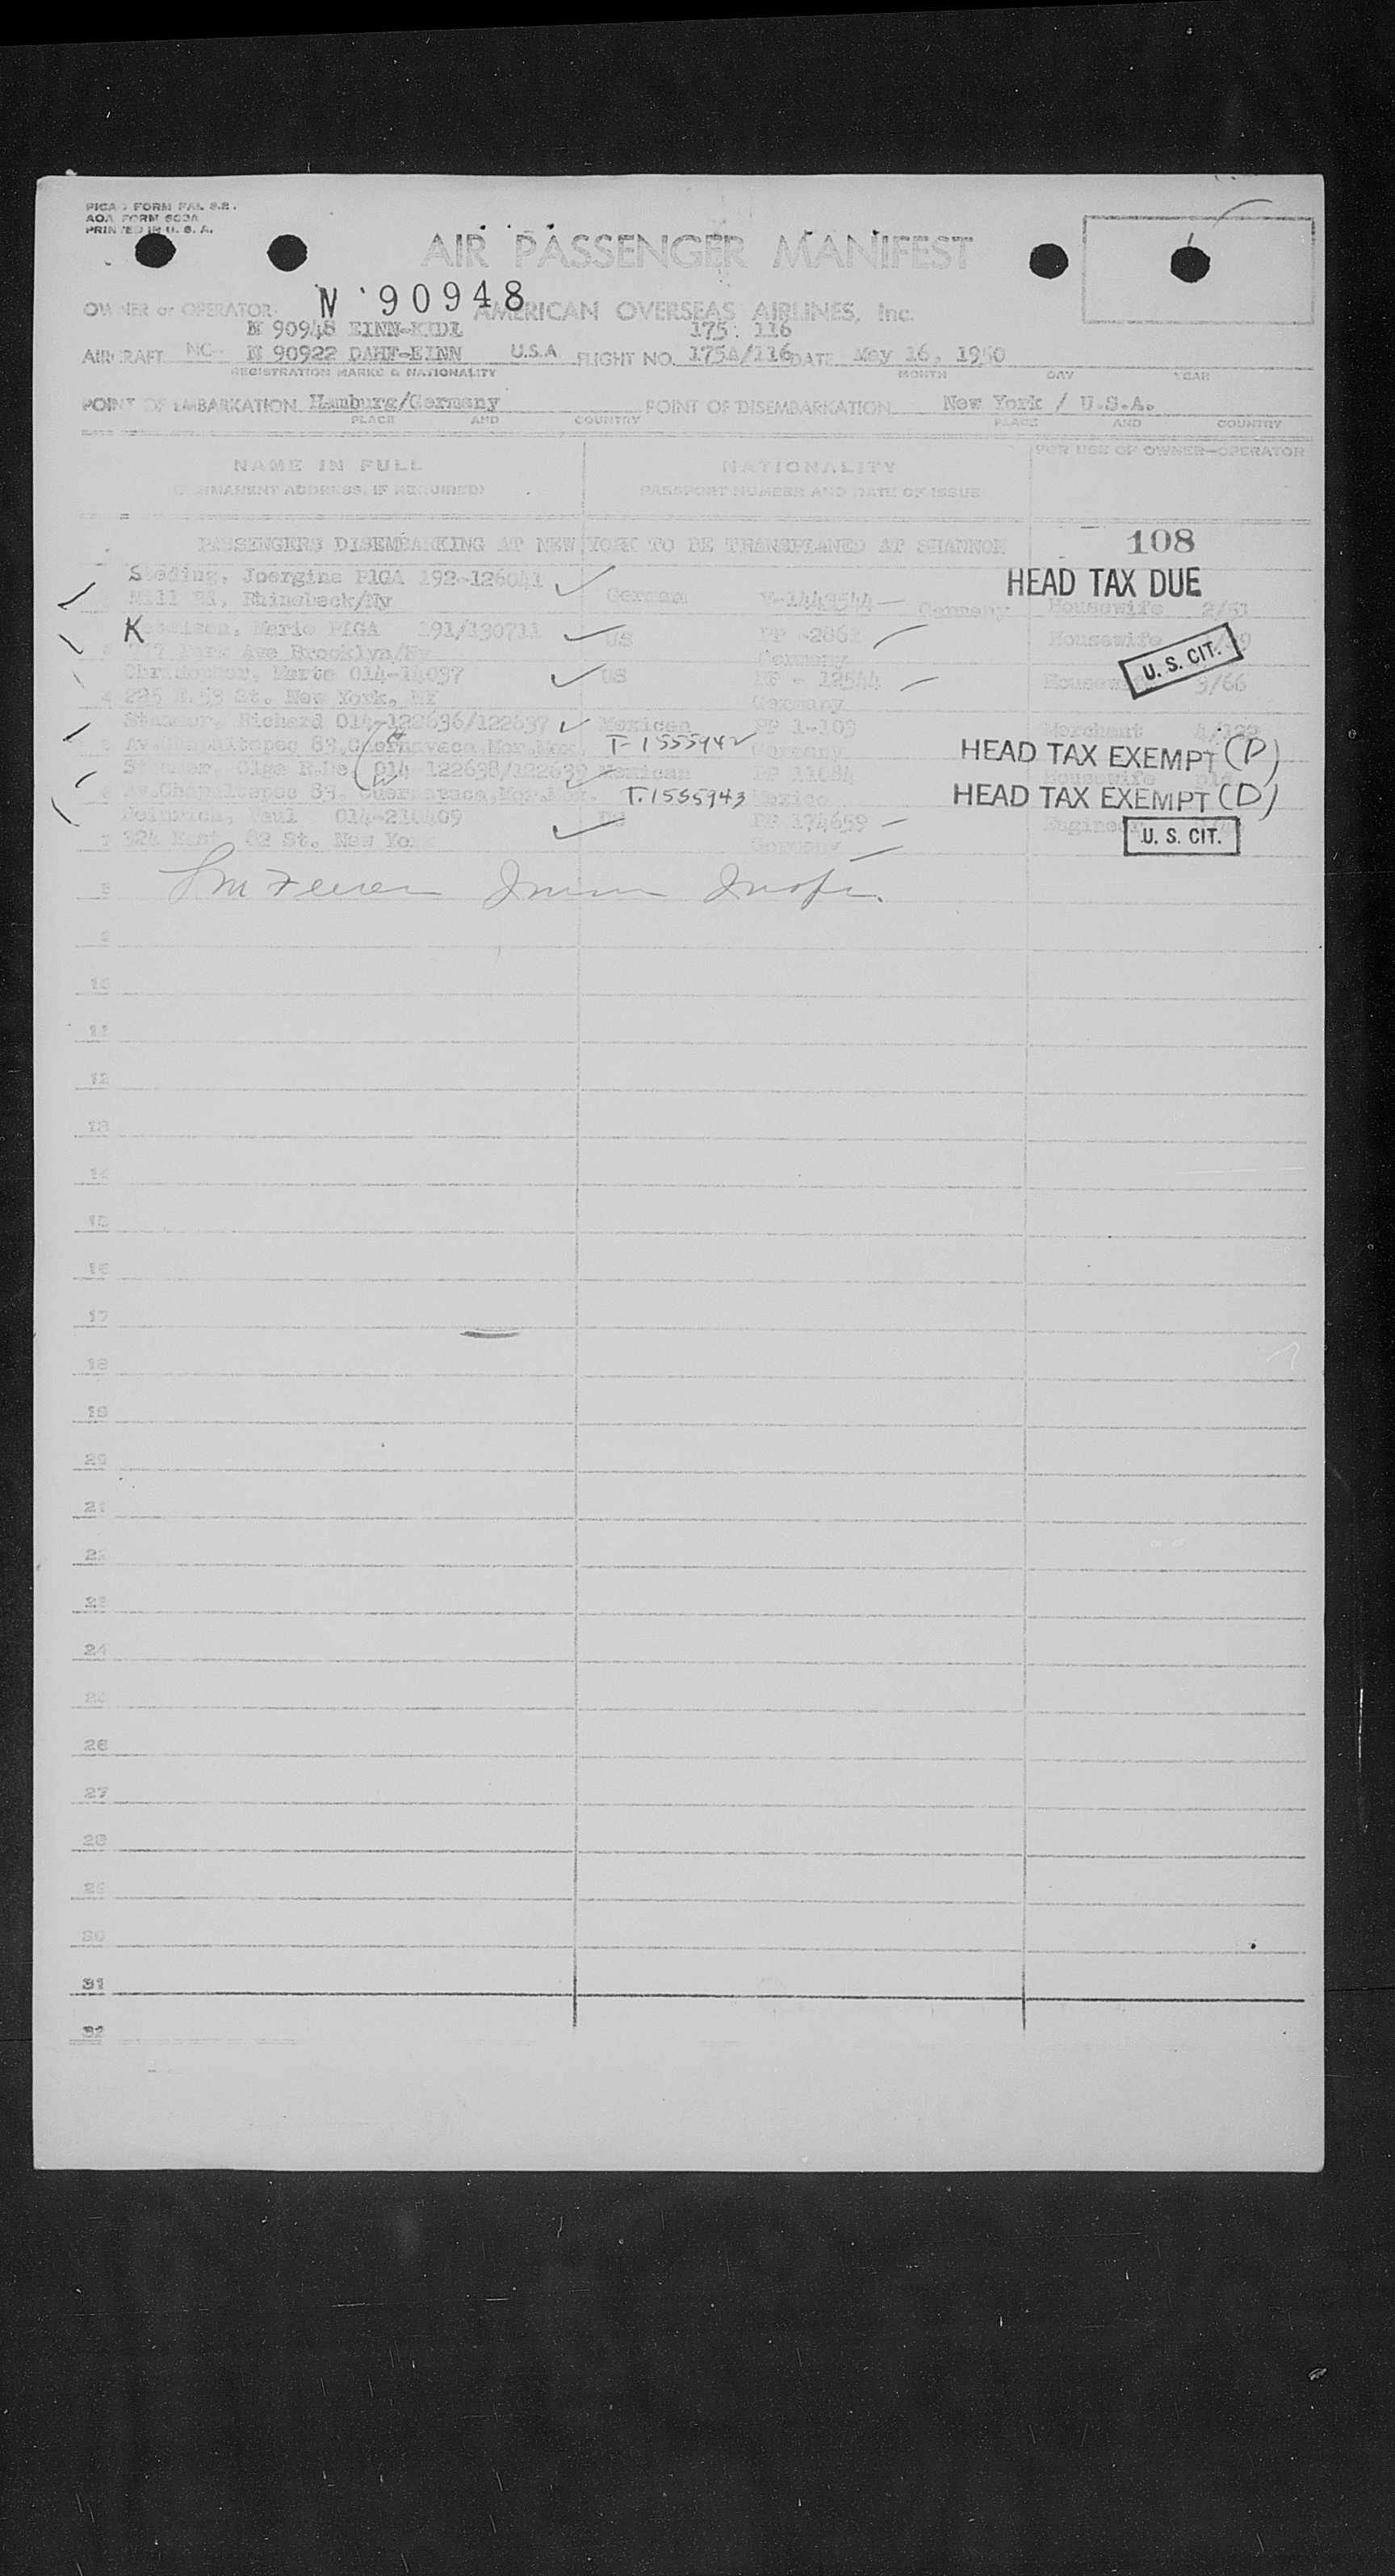 PICA FORM PAL S.2.
AOA FORM 600A
PRINTED IN U. S. A.
AIR PASSENGER MANIFEST
OWNER or OPERATOR N 90948 AMERICAN OVERSEAS AIRLINES, Inc.
N 90948 EINN-KIDL 175: 116
AIRCRAFT NC- N 90922 DAHF-EINN U.S.A FLIGHT NO. 175A/116 DATE May 16, 1950
REGISTRATION MARKS & NATIONALITY MONTH DAY YEAR
POINT OF EMBARKATION Hamburg/Germany POINT OF DISEMBARKATION New York / U.S.A.
PLACE AND COUNTRY PLACE AND COUNTRY
NAME IN FULL NATIONALITY FOR USE OF OWNER-OPERATOR
(PERMANENT ADDRESS, IF REQUIRED) PASSPORT NUMBER AND DATE OF ISSUE
PASSENGERS DISEMBARKING AT NEW YORK TO BE TRANSPLANED AT SHANNON 108
Steding, Joergine PIGA 192-126041 HEAD TAX DUE
Mill Rd, Rhinebeck/Ny German V-1443544 Germany Housewife 2/51
Marie PIGA 191/130711 US PP Housewife
Park Ave Brooklyn/Ny Germany U. S. CIT.
Christopher, Marte 014-14097 US PP - 12544 Housewife 3/66
225 E.53 St. New York, NY Germany
Richard 014-122636/122637 Mexican PP 1-109 Merchant
Av.Chapultepec 83,Cuernavaca,Mor.Mex. T-1555942 Germany HEAD TAX EXEMPT (P)
Olga R.De 014-122638/122639 Mexican PP 11084 Housewife
6 Av.Chapultepec 83, Cuernavaca,Mor.Mex. T.1555943 Mexico HEAD TAX EXEMPT (D)
Heinrich, Paul 014-210409 US PP 174659 Engineer
7 324 East, 82 St. New York Germany U. S. CIT.
8
9
10
11
12
13
14
15
16
17
18
19
20
21
22
23
24
25
26
27
28
29
30
31
32